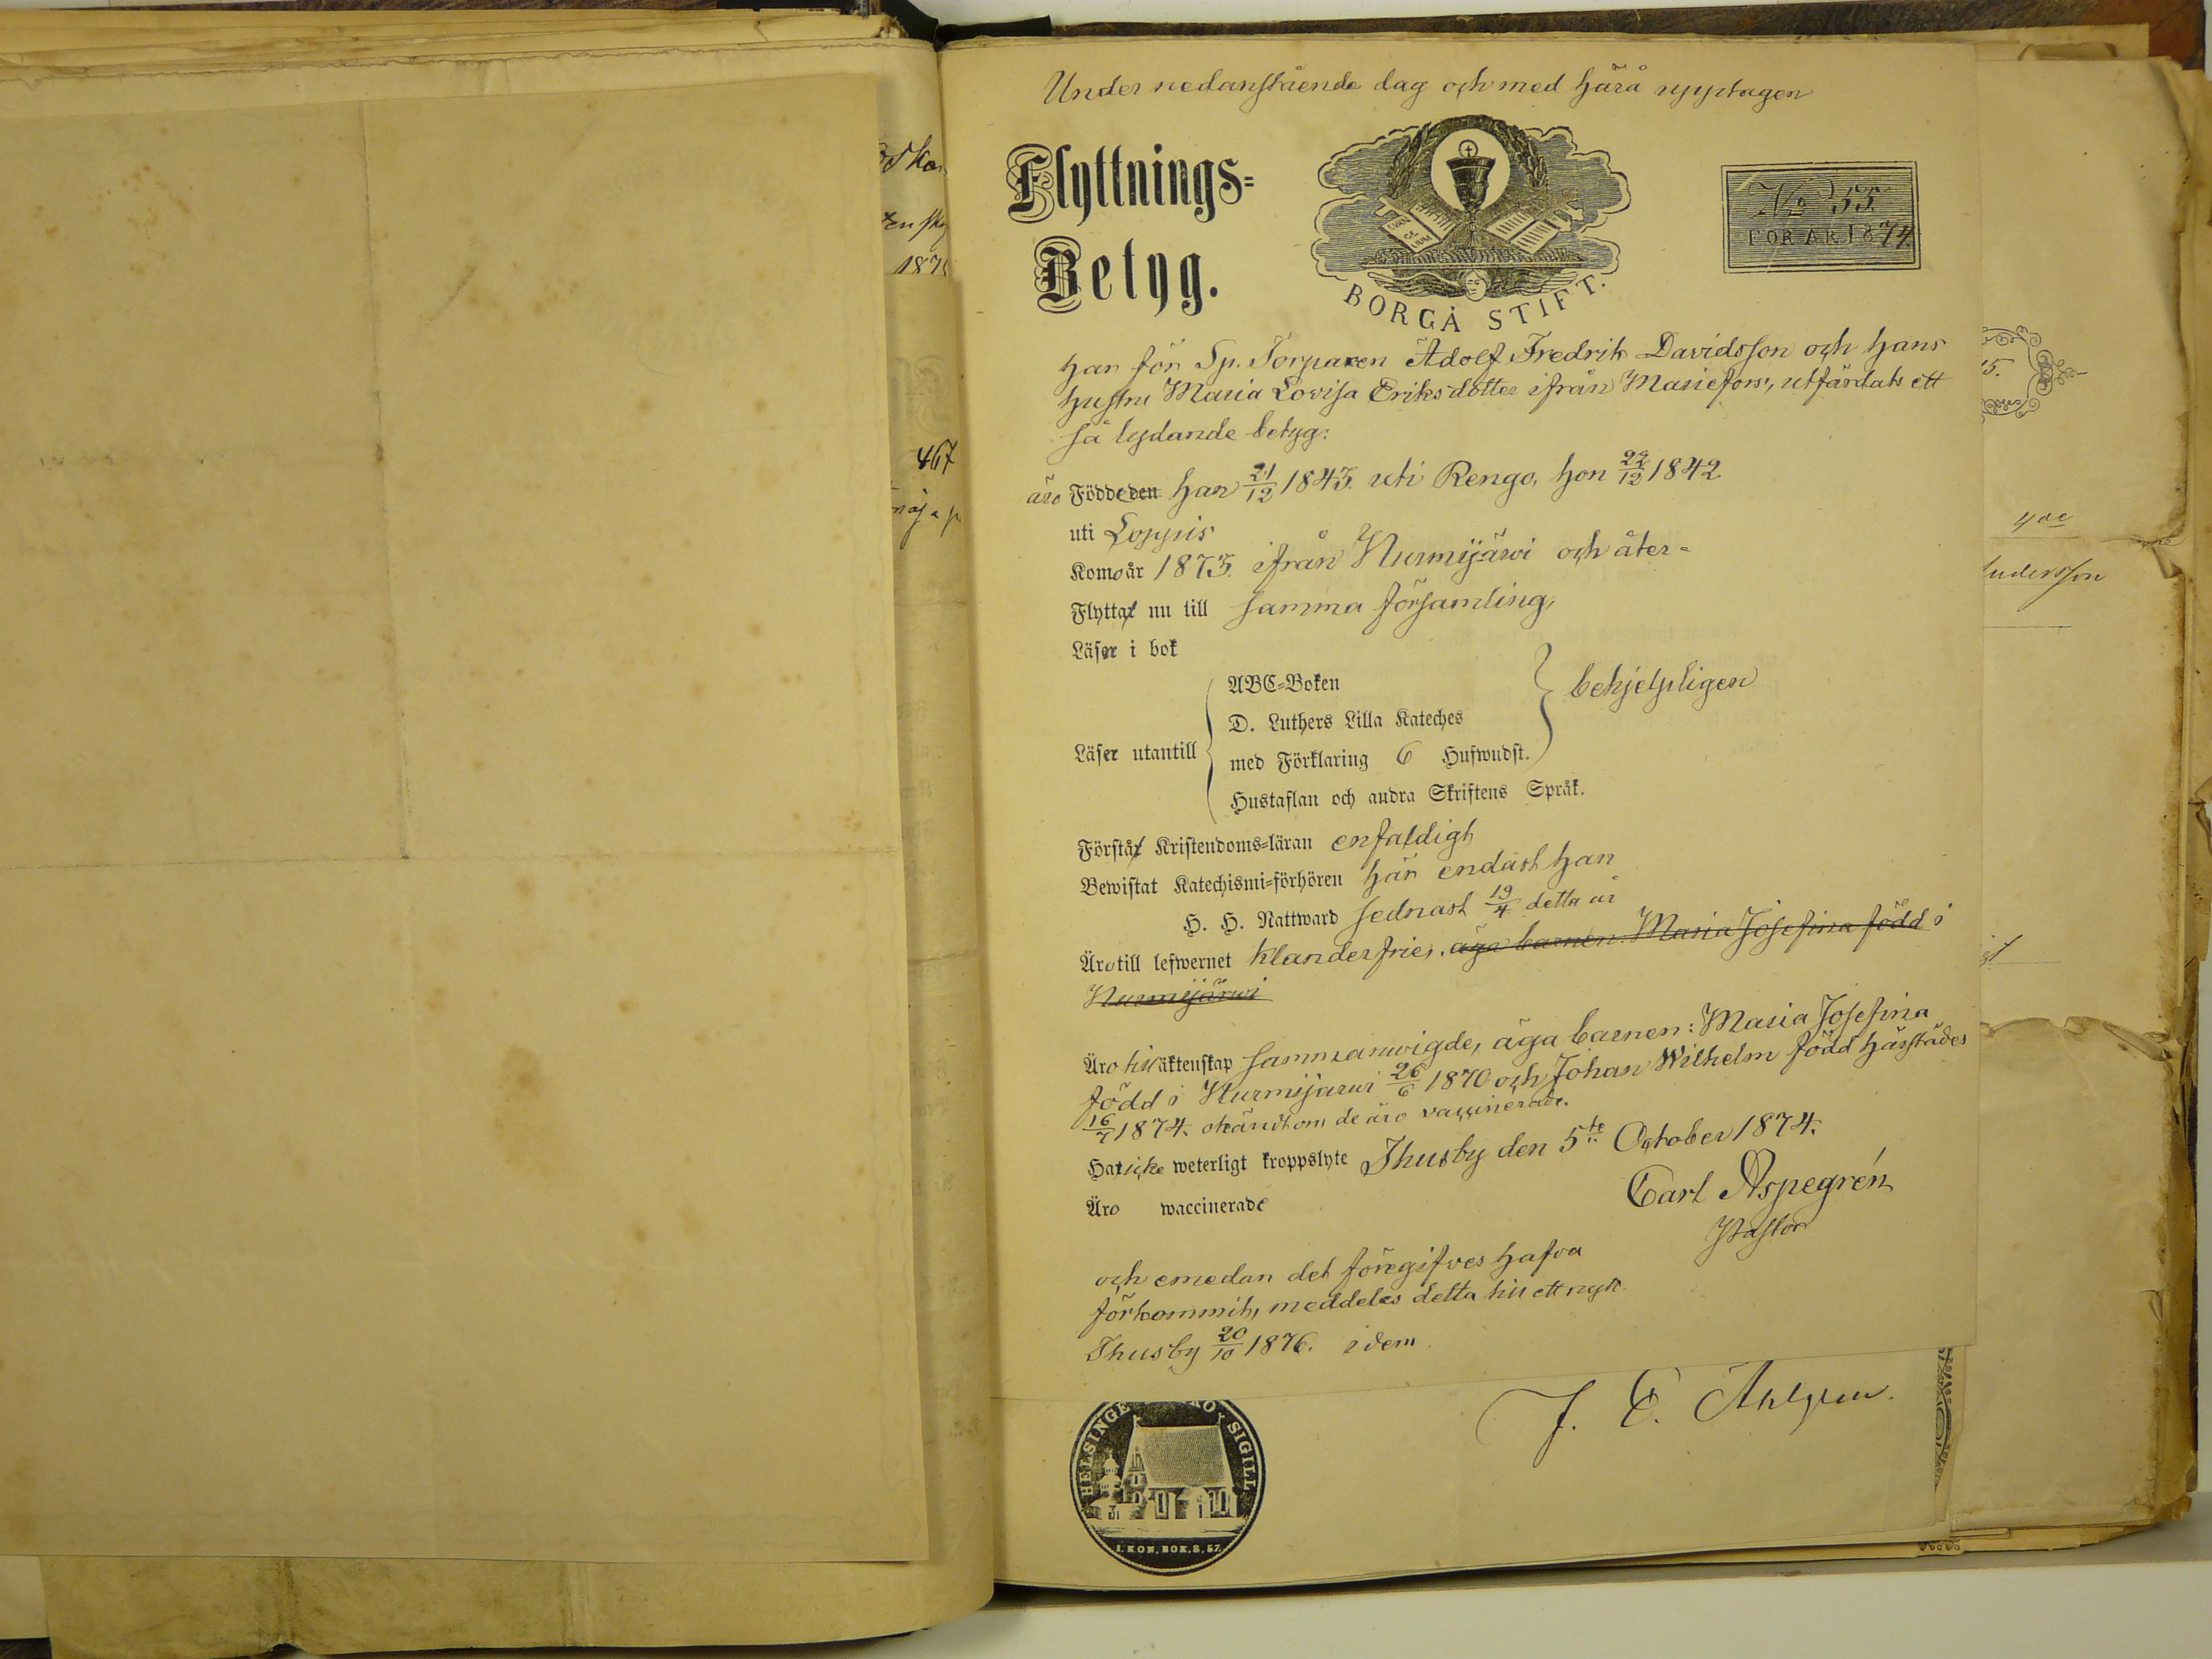 Under nedanstående dag och med härå upptagen
Flyttnings=
Betyg.
EVAN
GE
LIUM
BORGÅ STIFT.
No 55.
FÖR ÅR 1874
har för Sp. Torparen Adolf Fredrik Davidsson och hans
hustru Maria Lovisa Eriksdotter ifrån Mariefors, utfärdats ett
så lydande betyg:
äro Födde den han 21/12 1843. uti Rengo, hon 22/12 1842
uti Loppis
Komo år 1873. ifrån Nurmijärwi och åter=
Flytta nu till samma församling,
Läser i bok
Läser utantill
ABC=Boken
D. Luthers Lilla Kateches
med Förklaring 6 Hufwudst.
Hustaflan och andra Skriftens Språk.
behjelpligen
Förstå Kristendoms=läran enfaldigt
Bewistat Katechismi=förhören här endast han
H. H. Nattward sednast 19/4 detta år
Äro till lefwernet klanderfrie, äga barnen: Maria Josefina född i
Nurmijärwi
Äro till äktenskap sammanwigde, äga barnen: Maria Josefina
född i Nurmijärwi 26/6 1870 och Johan Wilhelm född härstädes
16/7 1874. okändt om de äro vaccinerade.
Ha icke weterligt kroppslyte Thusby den 5te October 1874.
Äro waccinerade
Carl Aspegrén
Pastor
och emedan det föregifves hafva
förkommit, meddelas detta till ett nytt.
Thusby 20/10 1876. idem
J. E. Ahlgren.
HELSINGE
SIGILL
1. KON. BOK. 8, 57.
467
15.